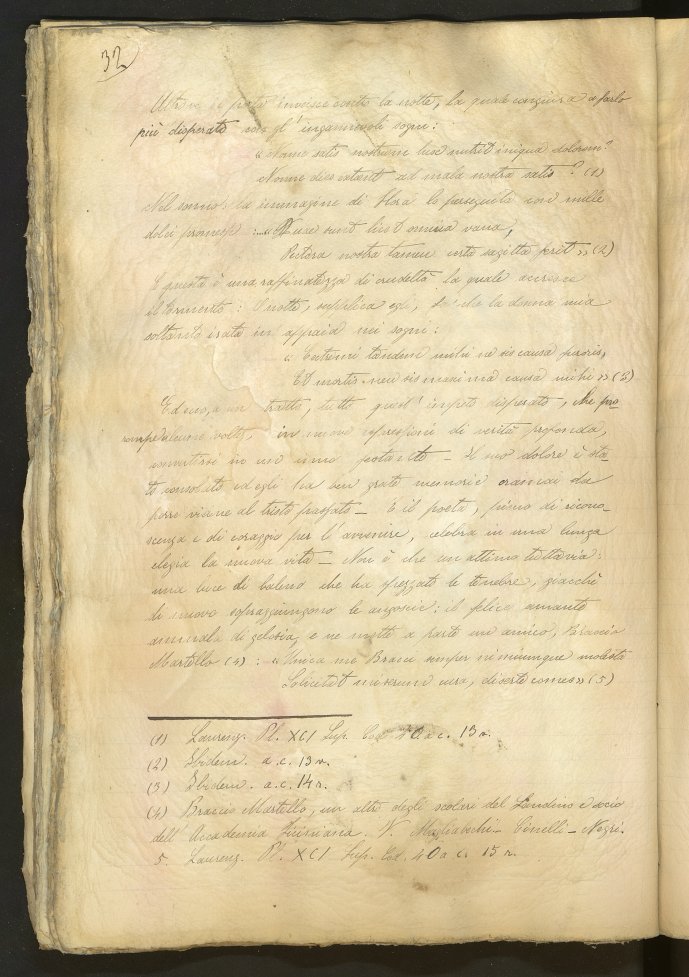 32
Altrove il poeta inveisce contro la notte, la quale congiura a farlo
più disperato con gl' ingannevoli sogni:
" Nonne satis nostrum luce nutrit iniqua dolorem?
Nonne dies extant ad mala nostra satis? (1)
Nel sonno la immagine di Flora lo perseguita con mille
dolci promesse: " sunt licet omnia vana,
Pectora nostra tamen certa sagitta ferit " (2)
E questa è una raffinatezza di crudeltà la quale accresce
il tormento: O notte, supplica egli, che la donna mia
soltanto irata mi appaia nei sogni:
"
Et mortis neu sis maxima causa mihi " (3)
Ed ecco, a un tratto, tutto quest' impeto disperato, che pro-
rompe alcune volte, in nuove espressioni di verità profonda,
convertirsi in un inno Il suo dolore è sta-
to consolato ed egli ha ben grate memorie oramai da
porre vicine al tristo passato _ E il poeta, pieno di ricono-
scenza e di coraggio per l' avvenire, celebra in una lunga
elegia la nuova vita _ Non è che un attimo tuttavia:
una luce di baleno che ha spezzato le tenebre, giacchè
di nuovo sopraggiungono le angosce: il felice amante
ammala di gelosia, e ne mette a parte un amico, Braccio
Martello (4) : " Unica me Bracci semper nimiumque molesta
Solicitat miserum cura, diserte comes " (5)
(1) Laurenz. Pl. XCI Sup. Cod. 40 a c. 13 r.
(2) Ibidem. a. c. 13 v.
(3) Ibidem. a. c. 14 r.
(4) Braccio Martello, un altro degli scolari del Landino e socio
dell' Accademia Ficiniana. V. Magliabechi _ Cinelli _ Negri.
5. Laurenz. Pl. XCI Sup. Cod. 40 a c. 15 r.